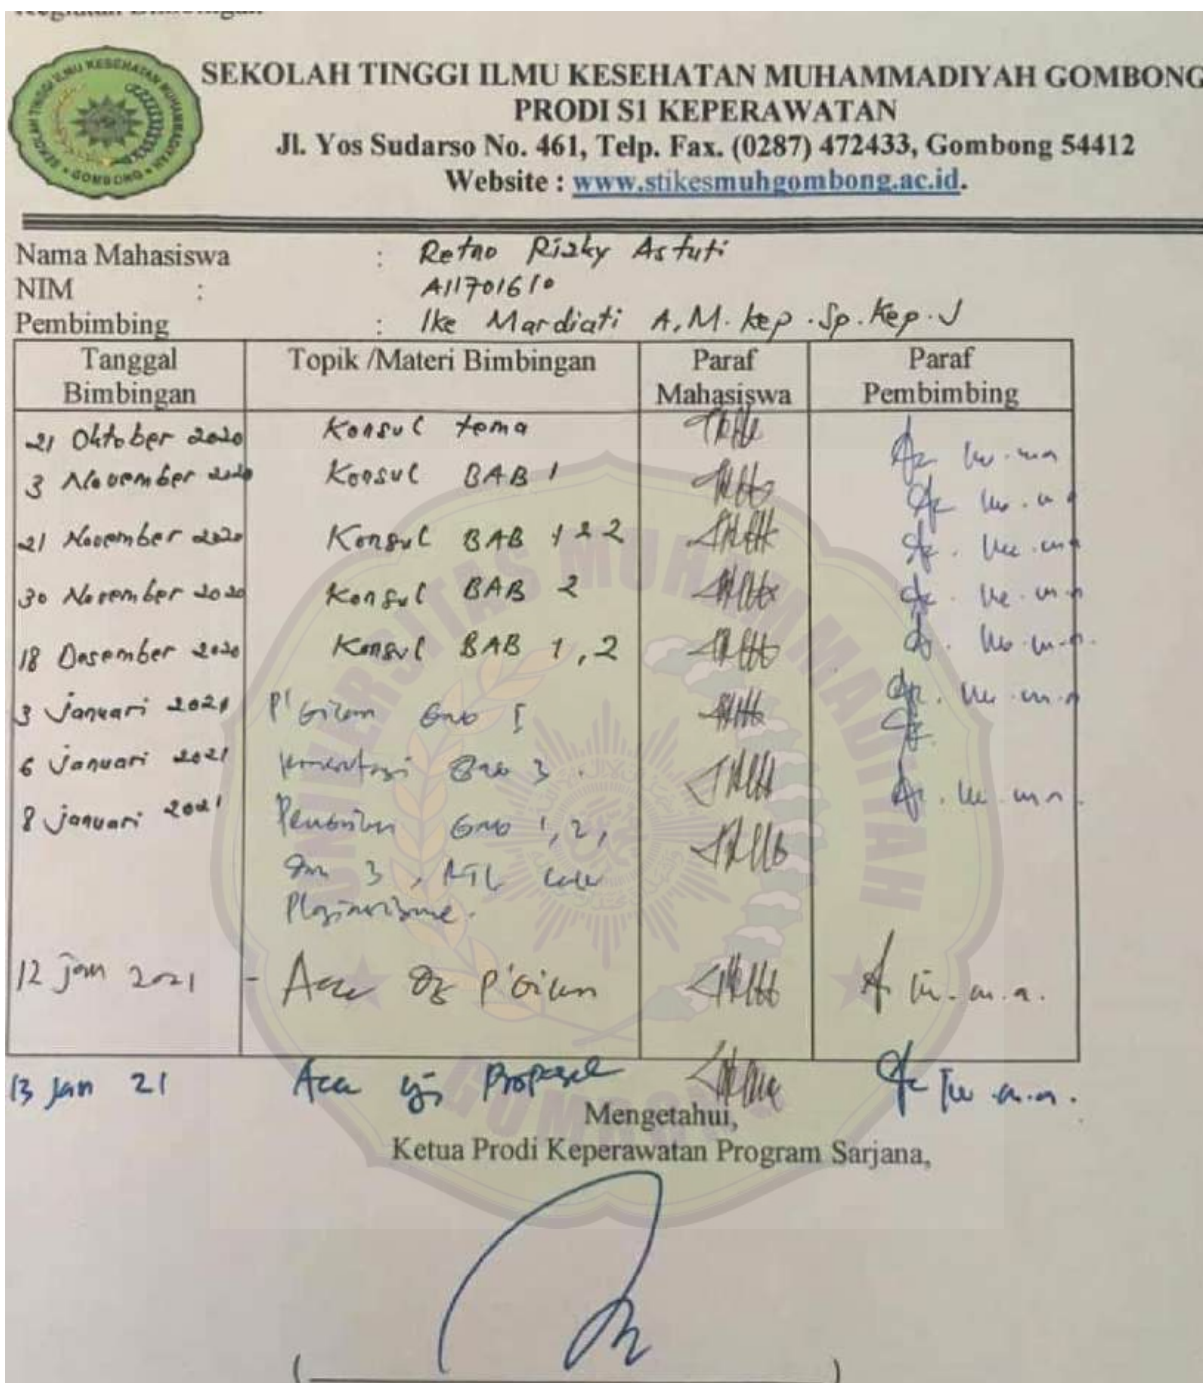 Kegiatan Bimbingan
SEKOLAH TINGGI ILMU KESEHATAN MUHAMMADIYAH GOMBONG
PRODI S1 KEPERAWATAN
Jl. Yos Sudarso No. 461, Telp. Fax. (0287) 472433, Gombong 54412
Website : www.stikesmuhgombong.ac.id.
Nama Mahasiswa : Retno Rizky Astuti
NIM : A11701610
Pembimbing : Ike Mardiati A, M. Kep. Sp. Kep. J
Tanggal Bimbingan Topik /Materi Bimbingan Paraf Mahasiswa Paraf Pembimbing
21 Oktober 2020 Konsul tema
3 November 2020 Konsul BAB 1
21 November 2020 Konsul BAB 1 2 2
30 November 2020 Konsul BAB 2
18 Desember 2020 Konsul BAB 1, 2
3 Januari 2021
6 Januari 2021 Bab 3.
8 Januari 2021 Bab 1, 2,
3,
Plagiarisme.
12 jan 2021 - Acc
13 Jan 21 Acc uji Proposal
Mengetahui,
Ketua Prodi Keperawatan Program Sarjana,
( )
UNIVERSITAS MUHAMMADIYAH
GOMBONG